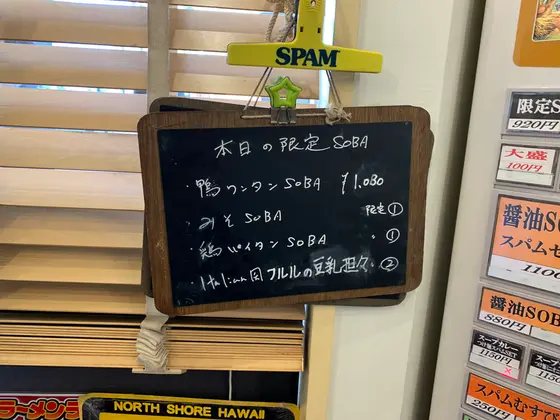 SPAM
本日の限定 SOBA
・鴨ワンタン SOBA ¥1,080
・みそ SOBA 限定①
・鶏パイタン SOBA 〃①
・Italian風フルルの豆乳担々 ②
限定S
920円
大盛
100円
醤油SO
スパムセ
1100
醤油SOB
880円
スープカレー
1150円
スープ
1150
スパムむす
250円
ラーメン
NORTH SHORE HAWAII